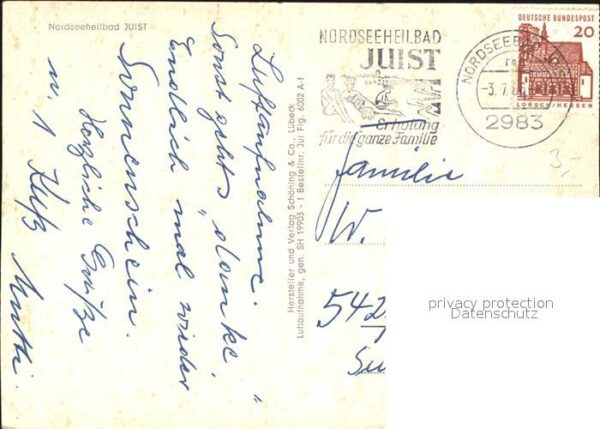 Nordseeheilbad JUIST
Luftaufnahme.
Sonst geht's „danke“
Endlich mal wieder
Sonnenschein.
Herzliche Grüße
u. 1 Kuß Mutti.
Hersteller und Verlag Schöning & Co., Lübeck
Luftaufnahme, gen. SH 19905 - 1 Bestellnr. Jui Flg. 6002 A-f
NORDSEEHEILBAD
JUIST
Erholung
für die ganze Familie
NORDSEEBAD
-3.7.
2983
DEUTSCHE BUNDESPOST
20
LORSCH/HESSEN
3,-
Familie
W.
542
privacy protection
Datenschutz